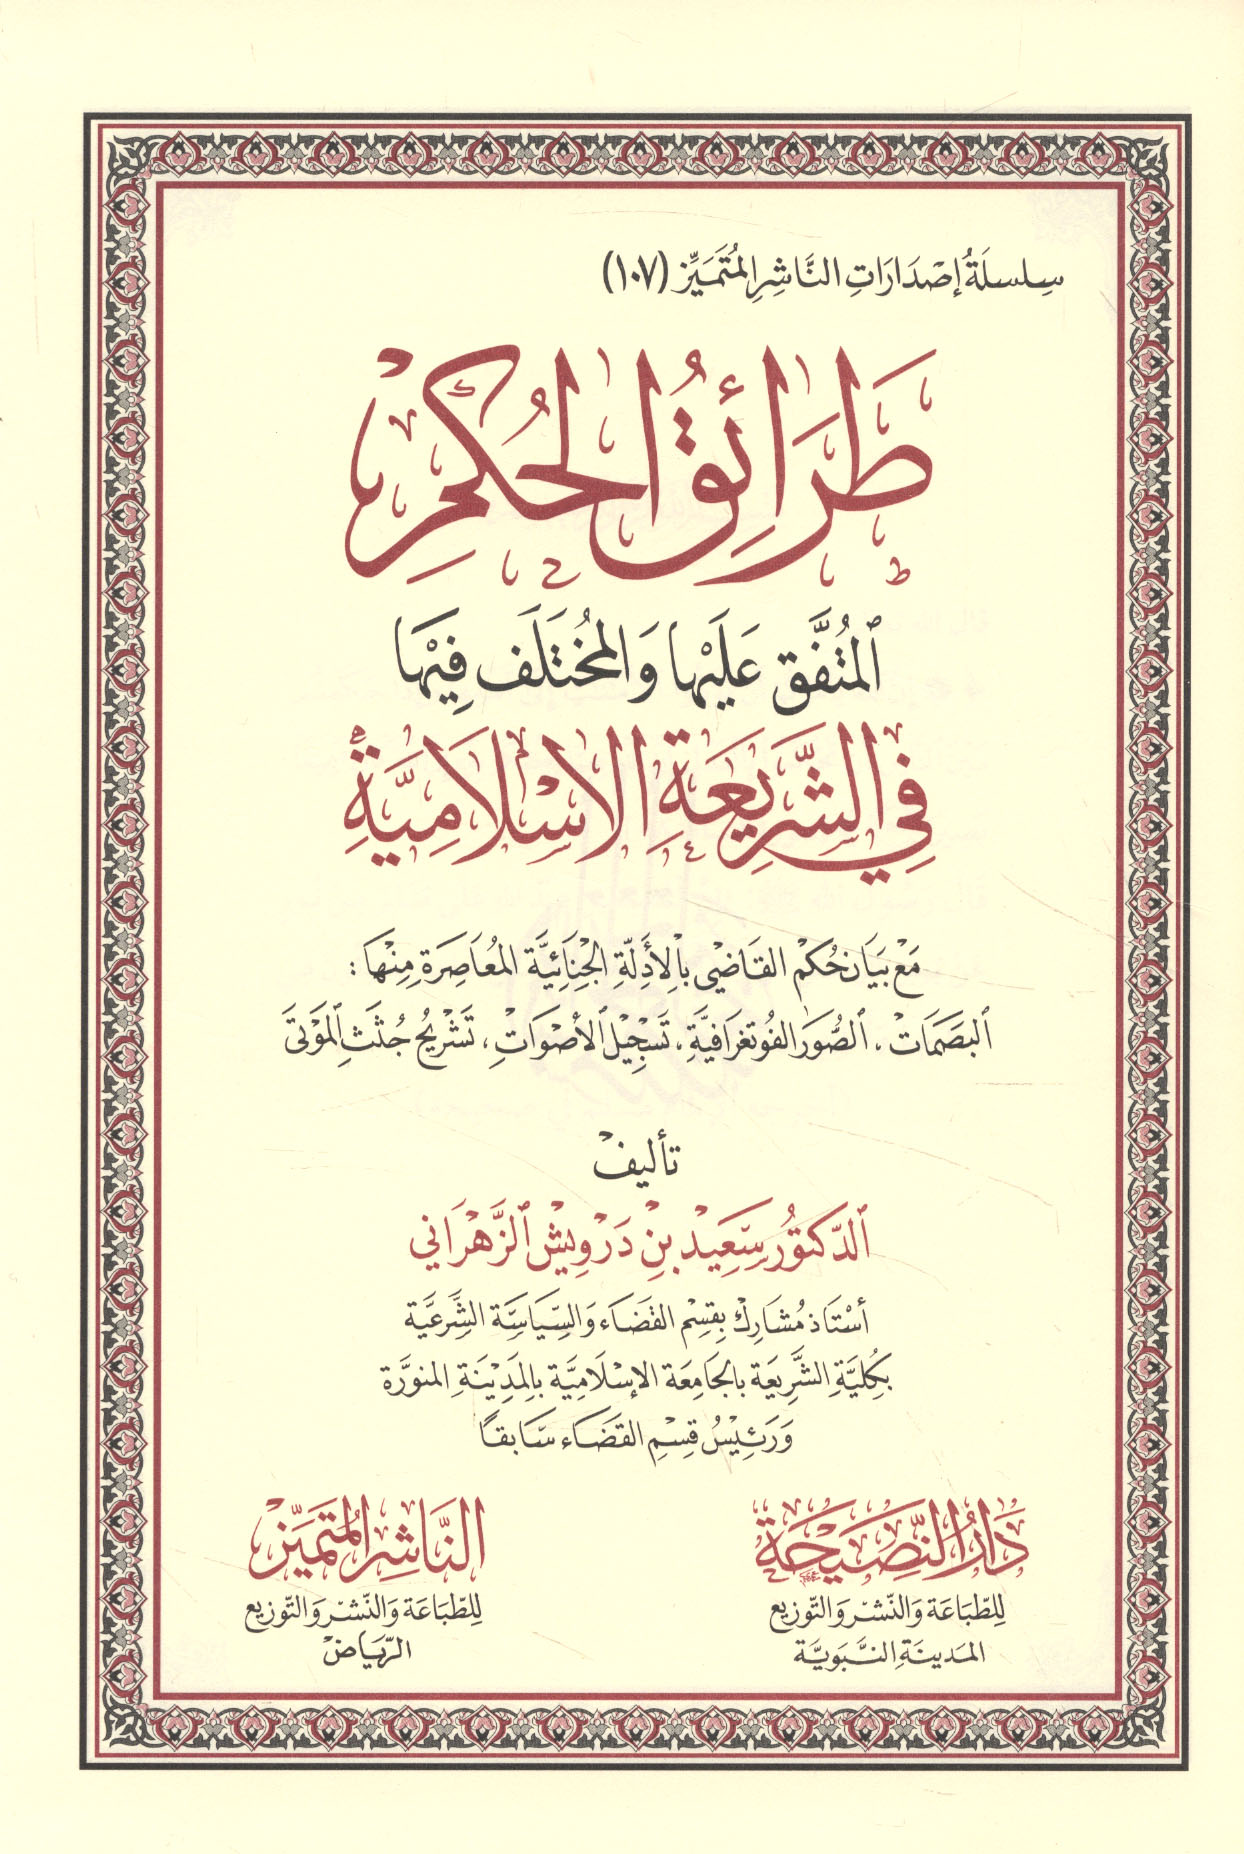 سِلسلَةُ إصْدَارَاتِ النَّاشِرِ المُتَمَيِّز (١٠٧)
طَرَائِقُ الحُكْمِ
المُتَّفَق عَلَيْها وَالمُخْتَلَف فِيْهَا
فِي الشَّرِيْعَةِ الإِسْلَامِيَّةِ
مَعْ بَيَان حُكْم القَاضِيْ بالأَدِلَّةِ الجِنَائِيَّةِ المُعَاصِرَةِ مِنْهَا :
البَصَمَاتْ ، الصُّوَر الفُوتغرَافِيَّةِ ، تَسْجِيْل الأصْوَاتْ ، تَشْرِيْحُ جُثَثِ المَوْتَىٰ
تأليفْ
الدّكتُور سَعِيْد بنْ دَرْوِيْش الزَّهْرَاني
أسْتَاذ مُشَارِكْ بِقِسْمِ القَضَاء وَالسِّيَاسَةِ الشَّرْعِيَّة
بكُلِيَّةِ الشَّرِيْعَة بالجَامعَة الإسْلَامِيَّة بالمَدِيْنَةِ المنوَّرَة
وَرَئِيْسُ قِسْمِ القَضَاء سَابقًا
دَارُ النَّصِيْحَة
لِلطّبَاعَة وَالنّشْر وَالتّوزيع
المَدينَة النَّبَويَّة
النَّاشِر المُتَمَيِّز
لِلطّبَاعَة وَالنّشْر وَالتّوزيع
الرّيَاضْ